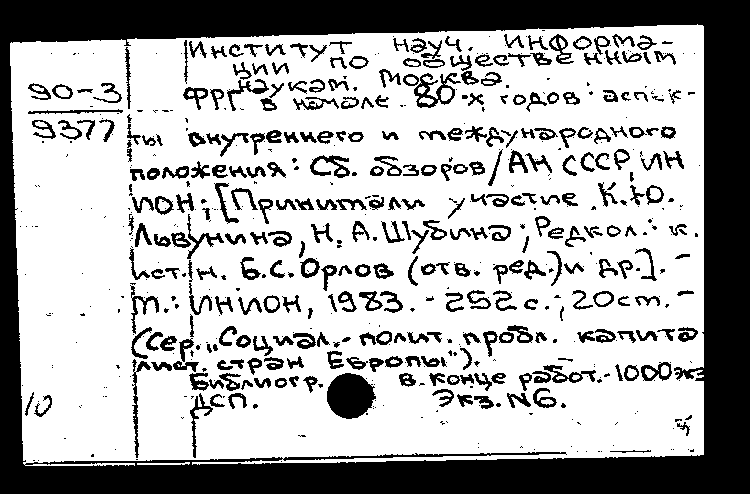 Институт науч. информа-
ции по общественным
наукам. Москва.
90-3
ФРГ в начале 80-х годов: аспек-
9377
ты внутреннего и международного
положения: Сб. обзоров/АН СССР, ИН
ИОН; [Принимали участие К.Ю.
Львунина, Н.А.Шубина; Редкол.: к.
ист.н. Б.С.Орлов (отв. ред.) и др.]. -
М.: ИНИОН, 1983. - 252 с.; 20 см. -
(Сер. „Социал.- полит. пробл. капита
лист. стран Европы").
Библиогр. в конце работ.- 1000 экз
10
ДСП. Экз. N6.